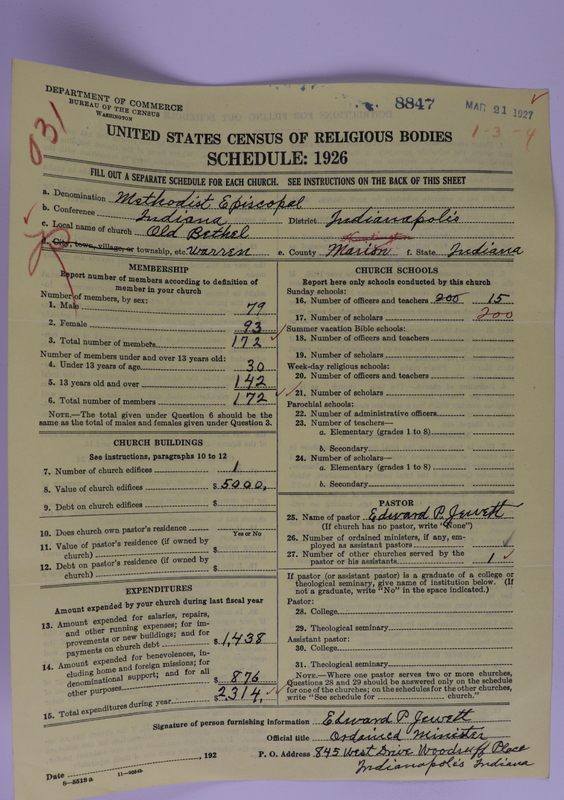 DEPARTMENT OF COMMERCE
BUREAU OF THE CENSUS
WASHINGTON
8847
MAR 21 1927
031
1-3-4
UNITED STATES CENSUS OF RELIGIOUS BODIES
SCHEDULE: 1926
FILL OUT A SEPARATE SCHEDULE FOR EACH CHURCH. SEE INSTRUCTIONS ON THE BACK OF THIS SHEET
a. Denomination Methodist Episcopal
b. Conference Indiana District Indianapolis
c. Local name of church Old Bethel
d. City, town, village, or township, etc. Warren e. County Marion f. State Indiana
MEMBERSHIP
Report number of members according to definition of
member in your church
Number of members, by sex:
1. Male 79
2. Female 93
3. Total number of members 172
Number of members under and over 13 years old:
4. Under 13 years of age 30
5. 13 years old and over 142
6. Total number of members 172
NOTE.—The total given under Question 6 should be the
same as the total of males and females given under Question 3.
CHURCH BUILDINGS
See instructions, paragraphs 10 to 12
7. Number of church edifices 1
8. Value of church edifices $5000.
9. Debt on church edifices $
10. Does church own pastor's residence
Yes or No
11. Value of pastor's residence (if owned by
church) $
12. Debt on pastor's residence (if owned by
church) $
EXPENDITURES
Amount expended by your church during last fiscal year
13. Amount expended for salaries, repairs,
and other running expenses; for im-
provements or new buildings; and for
payments on church debt $1,438
14. Amount expended for benevolences, in-
cluding home and foreign missions; for
denominational support; and for all
other purposes $876
15. Total expenditures during year $2314.
CHURCH SCHOOLS
Report here only schools conducted by this church
Sunday schools:
16. Number of officers and teachers 200 15
17. Number of scholars 200
Summer vacation Bible schools:
18. Number of officers and teachers
19. Number of scholars
Week-day religious schools:
20. Number of officers and teachers
21. Number of scholars
Parochial schools:
22. Number of administrative officers
23. Number of teachers—
a. Elementary (grades 1 to 8)
b. Secondary
24. Number of scholars—
a. Elementary (grades 1 to 8)
b. Secondary
PASTOR
25. Name of pastor Edward P. Jewett
(If church has no pastor, write "None")
26. Number of ordained ministers, if any, em-
ployed as assistant pastors
27. Number of other churches served by the
pastor or his assistants 1
If pastor (or assistant pastor) is a graduate of a college or
theological seminary, give name of institution below. (If
not a graduate, write "No" in the space indicated.)
Pastor:
28. College
29. Theological seminary
Assistant pastor:
30. College
31. Theological seminary
NOTE.—Where one pastor serves two or more churches,
Questions 28 and 29 should be answered only on the schedule
for one of the churches; on the schedules for the other churches,
write "See schedule for church."
Signature of person furnishing information Edward P. Jewett
Official title Ordained Minister
Date 192 P. O. Address 845 West Drive Woodruff Place
Indianapolis Indiana
8-5518a 11-9084b